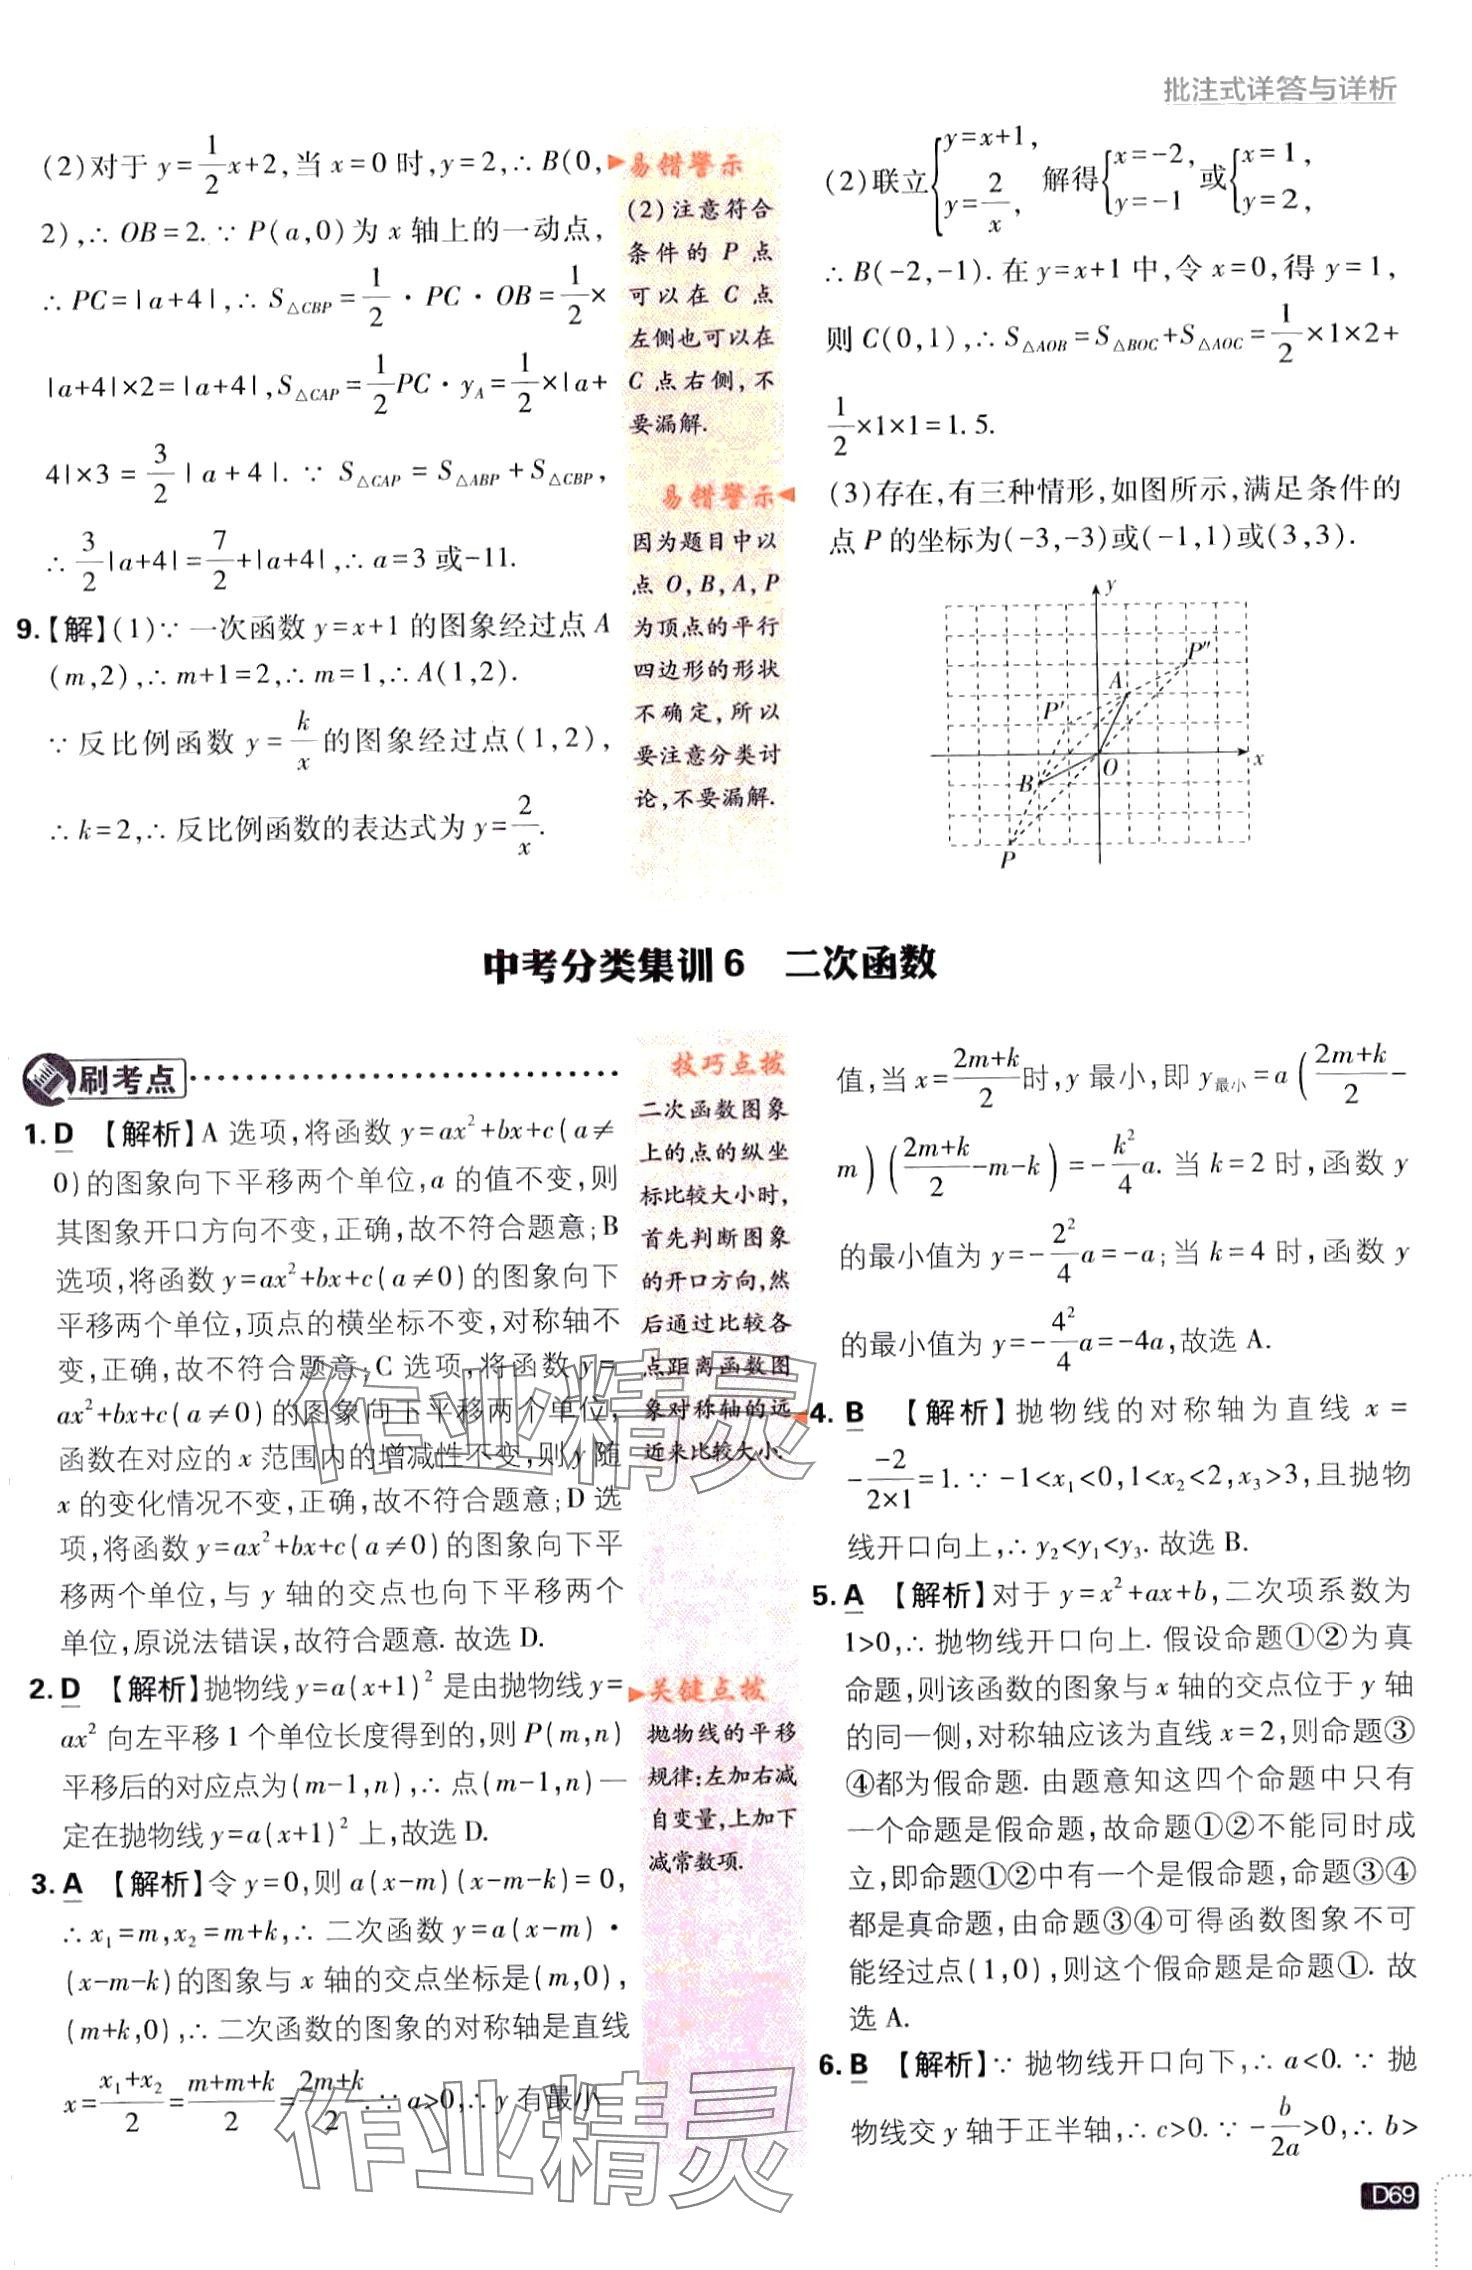 批注式详答与详析
(2)对于 y=1/2x+2,当 x=0 时,y=2,∴ B(0,
2),∴ OB=2.∵ P(a,0)为 x 轴上的一动点,
∴ PC=|a+4|,∴ S△CBP=1/2·PC·OB=1/2×
|a+4|×2=|a+4|,S△CAP=1/2PC·yA=1/2×|a+
4|×3=3/2|a+4|.∵ S△CAP=S△ABP+S△CBP,
∴ 3/2|a+4|=7/2+|a+4|,∴ a=3 或-11.
9.【解】(1)∵ 一次函数 y=x+1 的图象经过点 A
(m,2),∴ m+1=2,∴ m=1,∴ A(1,2).
∵ 反比例函数 y=k/x 的图象经过点(1,2),
∴ k=2,∴ 反比例函数的表达式为 y=2/x.
易错警示
(2)注意符合
条件的 P 点
可以在 C 点
左侧也可以在
C 点右侧,不
要漏解.
易错警示
因为题目中以
点 O,B,A,P
为顶点的平行
四边形的形状
不确定,所以
要注意分类讨
论,不要漏解.
(2)联立{y=x+1, y=2/x, 解得{x=-2, y=-1 或{x=1, y=2,
∴ B(-2,-1). 在 y=x+1 中,令 x=0,得 y=1,
则 C(0,1),∴ S△AOB=S△BOC+S△AOC=1/2×1×2+
1/2×1×1=1.5.
(3)存在,有三种情形,如图所示,满足条件的
点 P 的坐标为(-3,-3)或(-1,1)或(3,3).
y
P″
A
P′
O
x
B
P
中考分类集训 6 二次函数
刷考点
1. D 【解析】A 选项,将函数 y=ax²+bx+c(a≠
0)的图象向下平移两个单位,a 的值不变,则
其图象开口方向不变,正确,故不符合题意;B
选项,将函数 y=ax²+bx+c(a≠0)的图象向下
平移两个单位,顶点的横坐标不变,对称轴不
变,正确,故不符合题意;C 选项,将函数 y=
ax²+bx+c(a≠0)的图象向下平移两个单位,
函数在对应的 x 范围内的增减性不变,则 y 随
x 的变化情况不变,正确,故不符合题意;D 选
项,将函数 y=ax²+bx+c(a≠0)的图象向下平
移两个单位,与 y 轴的交点也向下平移两个
单位,原说法错误,故符合题意. 故选 D.
2. D 【解析】抛物线 y=a(x+1)² 是由抛物线 y=
ax² 向左平移 1 个单位长度得到的,则 P(m,n)
平移后的对应点为(m-1,n),∴ 点(m-1,n)一
定在抛物线 y=a(x+1)² 上,故选 D.
3. A 【解析】令 y=0,则 a(x-m)(x-m-k)=0,
∴ x₁=m,x₂=m+k,∴ 二次函数 y=a(x-m)·
(x-m-k)的图象与 x 轴的交点坐标是(m,0),
(m+k,0),∴ 二次函数的图象的对称轴是直线
x=(x₁+x₂)/2=(m+m+k)/2=(2m+k)/2.∵ a>0,∴ y 有最小
技巧点拨
二次函数图象
上的点的纵坐
标比较大小时,
首先判断图象
的开口方向,然
后通过比较各
点距离函数图
象对称轴的远
近来比较大小.
关键点拨
抛物线的平移
规律:左加右减
自变量,上加下
减常数项.
值,当 x=(2m+k)/2时,y 最小,即 y最小=a((2m+k)/2-
m)((2m+k)/2-m-k)=-k²/4a. 当 k=2 时,函数 y
的最小值为 y=-2²/4a=-a;当 k=4 时,函数 y
的最小值为 y=-4²/4a=-4a,故选 A.
4. B 【解析】抛物线的对称轴为直线 x=
-(-2)/(2×1)=1.∵ -1<x₁<0,1<x₂<2,x₃>3,且抛物
线开口向上,∴ y₂<y₁<y₃. 故选 B.
5. A 【解析】对于 y=x²+ax+b,二次项系数为
1>0,∴ 抛物线开口向上. 假设命题①②为真
命题,则该函数的图象与 x 轴的交点位于 y 轴
的同一侧,对称轴应该为直线 x=2,则命题③
④都为假命题. 由题意知这四个命题中只有
一个命题是假命题,故命题①②不能同时成
立,即命题①②中有一个是假命题,命题③④
都是真命题,由命题③④可得函数图象不可
能经过点(1,0),则这个假命题是命题①. 故
选 A.
6. B 【解析】∵ 抛物线开口向下,∴ a<0.∵ 抛
物线交 y 轴于正半轴,∴ c>0.∵ -b/2a>0,∴ b>
作业精灵
作业精灵
D69